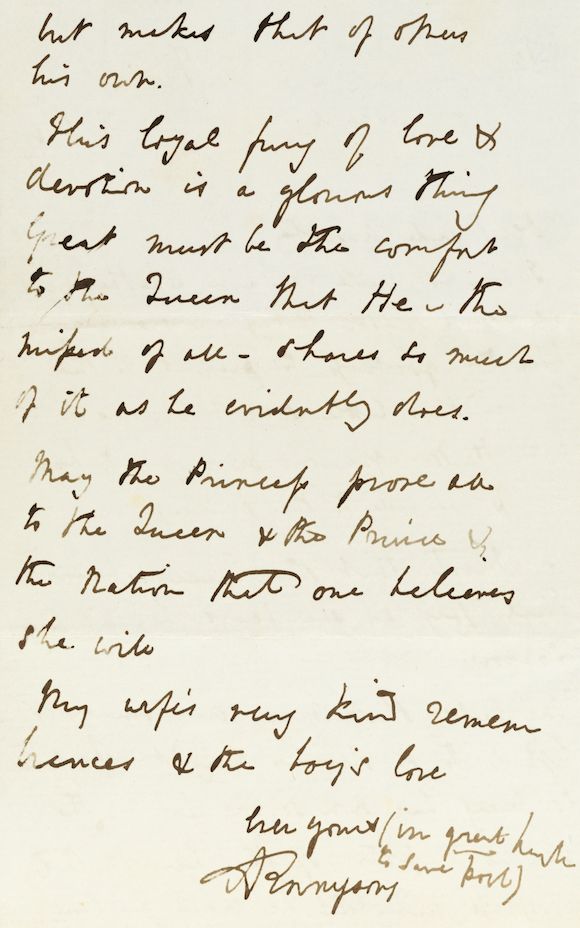 but makes that of others
his own.
This loyal fury of love &
devotion is a glorious thing
Great must be the comfort
to the Queen that He - the
missed of all - shares so much
of it as he evidently does.
May the Princess prove all
to the Queen & the Prince &
the Nation that one believes
she will
My wife's very kind remem
brances & the boys love
Ever yours (in great haste
to save post)
ATennyson